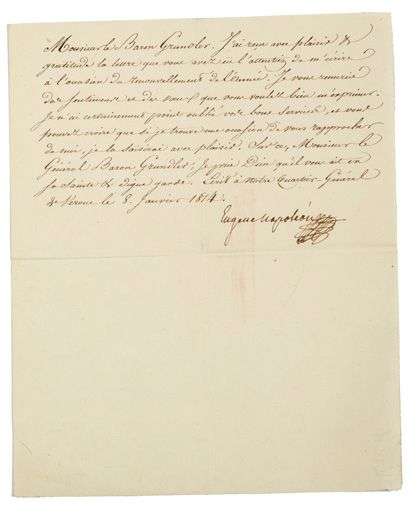 Monsieur le Baron Grundler. J'ai reçu avec plaisir &
gratitude la lettre que vous avez eu l'attention de m'écrire
à l'occasion du renouvellement de l'année. Je vous remercie
des sentimens et des voeux que vous voulez bien m'exprimer.
Je n'ai certainement point oublié vos bons services, et vous
pouvez croire que si je trouve une occasion de vous rapprocher
de moi, je la saisirai avec plaisir. Sur ce, Monsieur le
Général Baron Grundler, je prie Dieu qu'il vous ait en
sa sainte & digne garde. Écrit à notre Quartier Général
de Verone le 8 Janvier 1814.
Eugène Napoléon